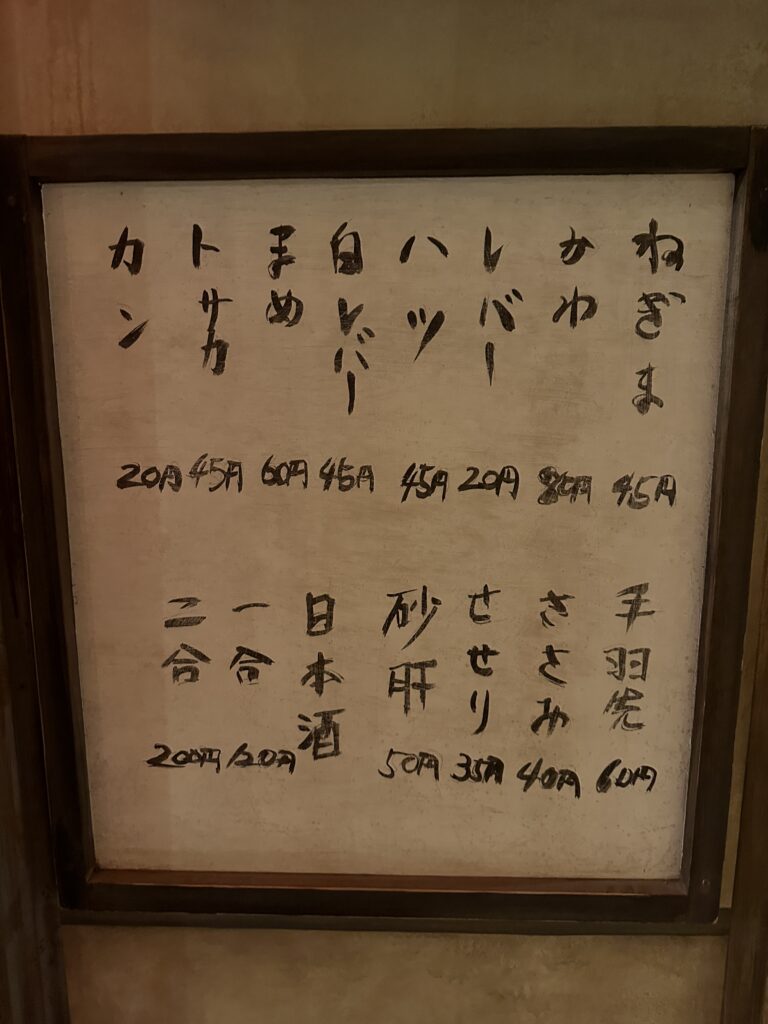 ねぎま 45円
かわ
レバー 20円
ハツ 45円
白レバー 45円
まめ 60円
トサカ 45円
カン 20円
手羽先 60円
ささみ 40円
せせり 35円
砂肝 50円
日本酒
一合 120円
二合 200円